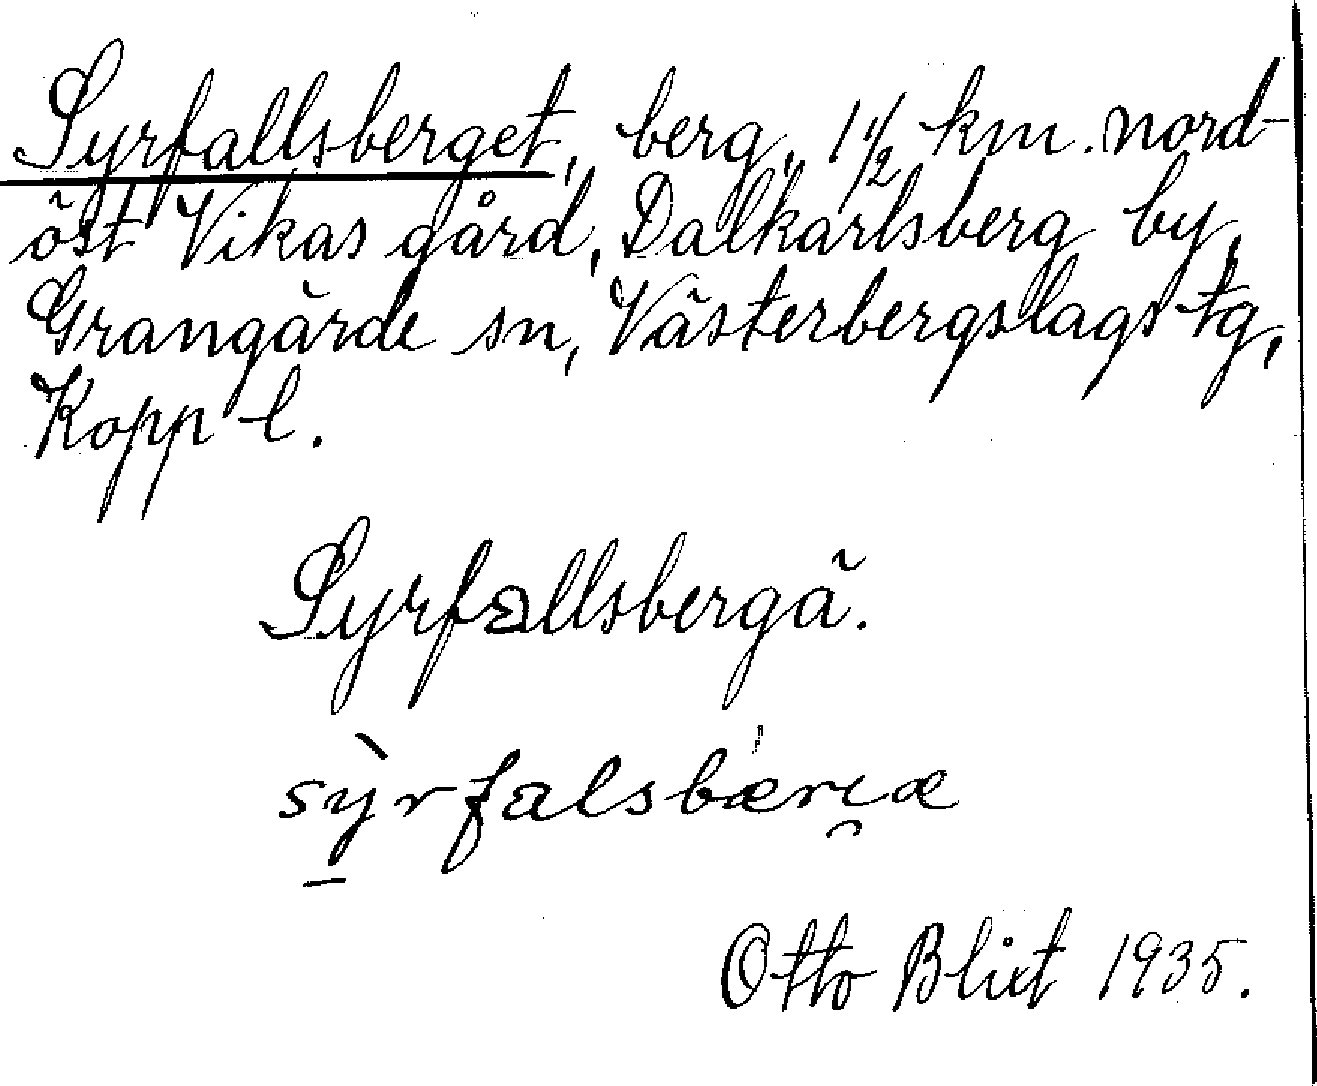 Syrfallsberget, berg, 1 1/2 km. nord-
öst Vikas gård, Dalkarlsberg by,
Grangärde sn, Västerbergslags tg,
Kopp l.
Syrfallsbergä.
sỳ̠rfalsbæri̯æ
Otto Blixt 1935.